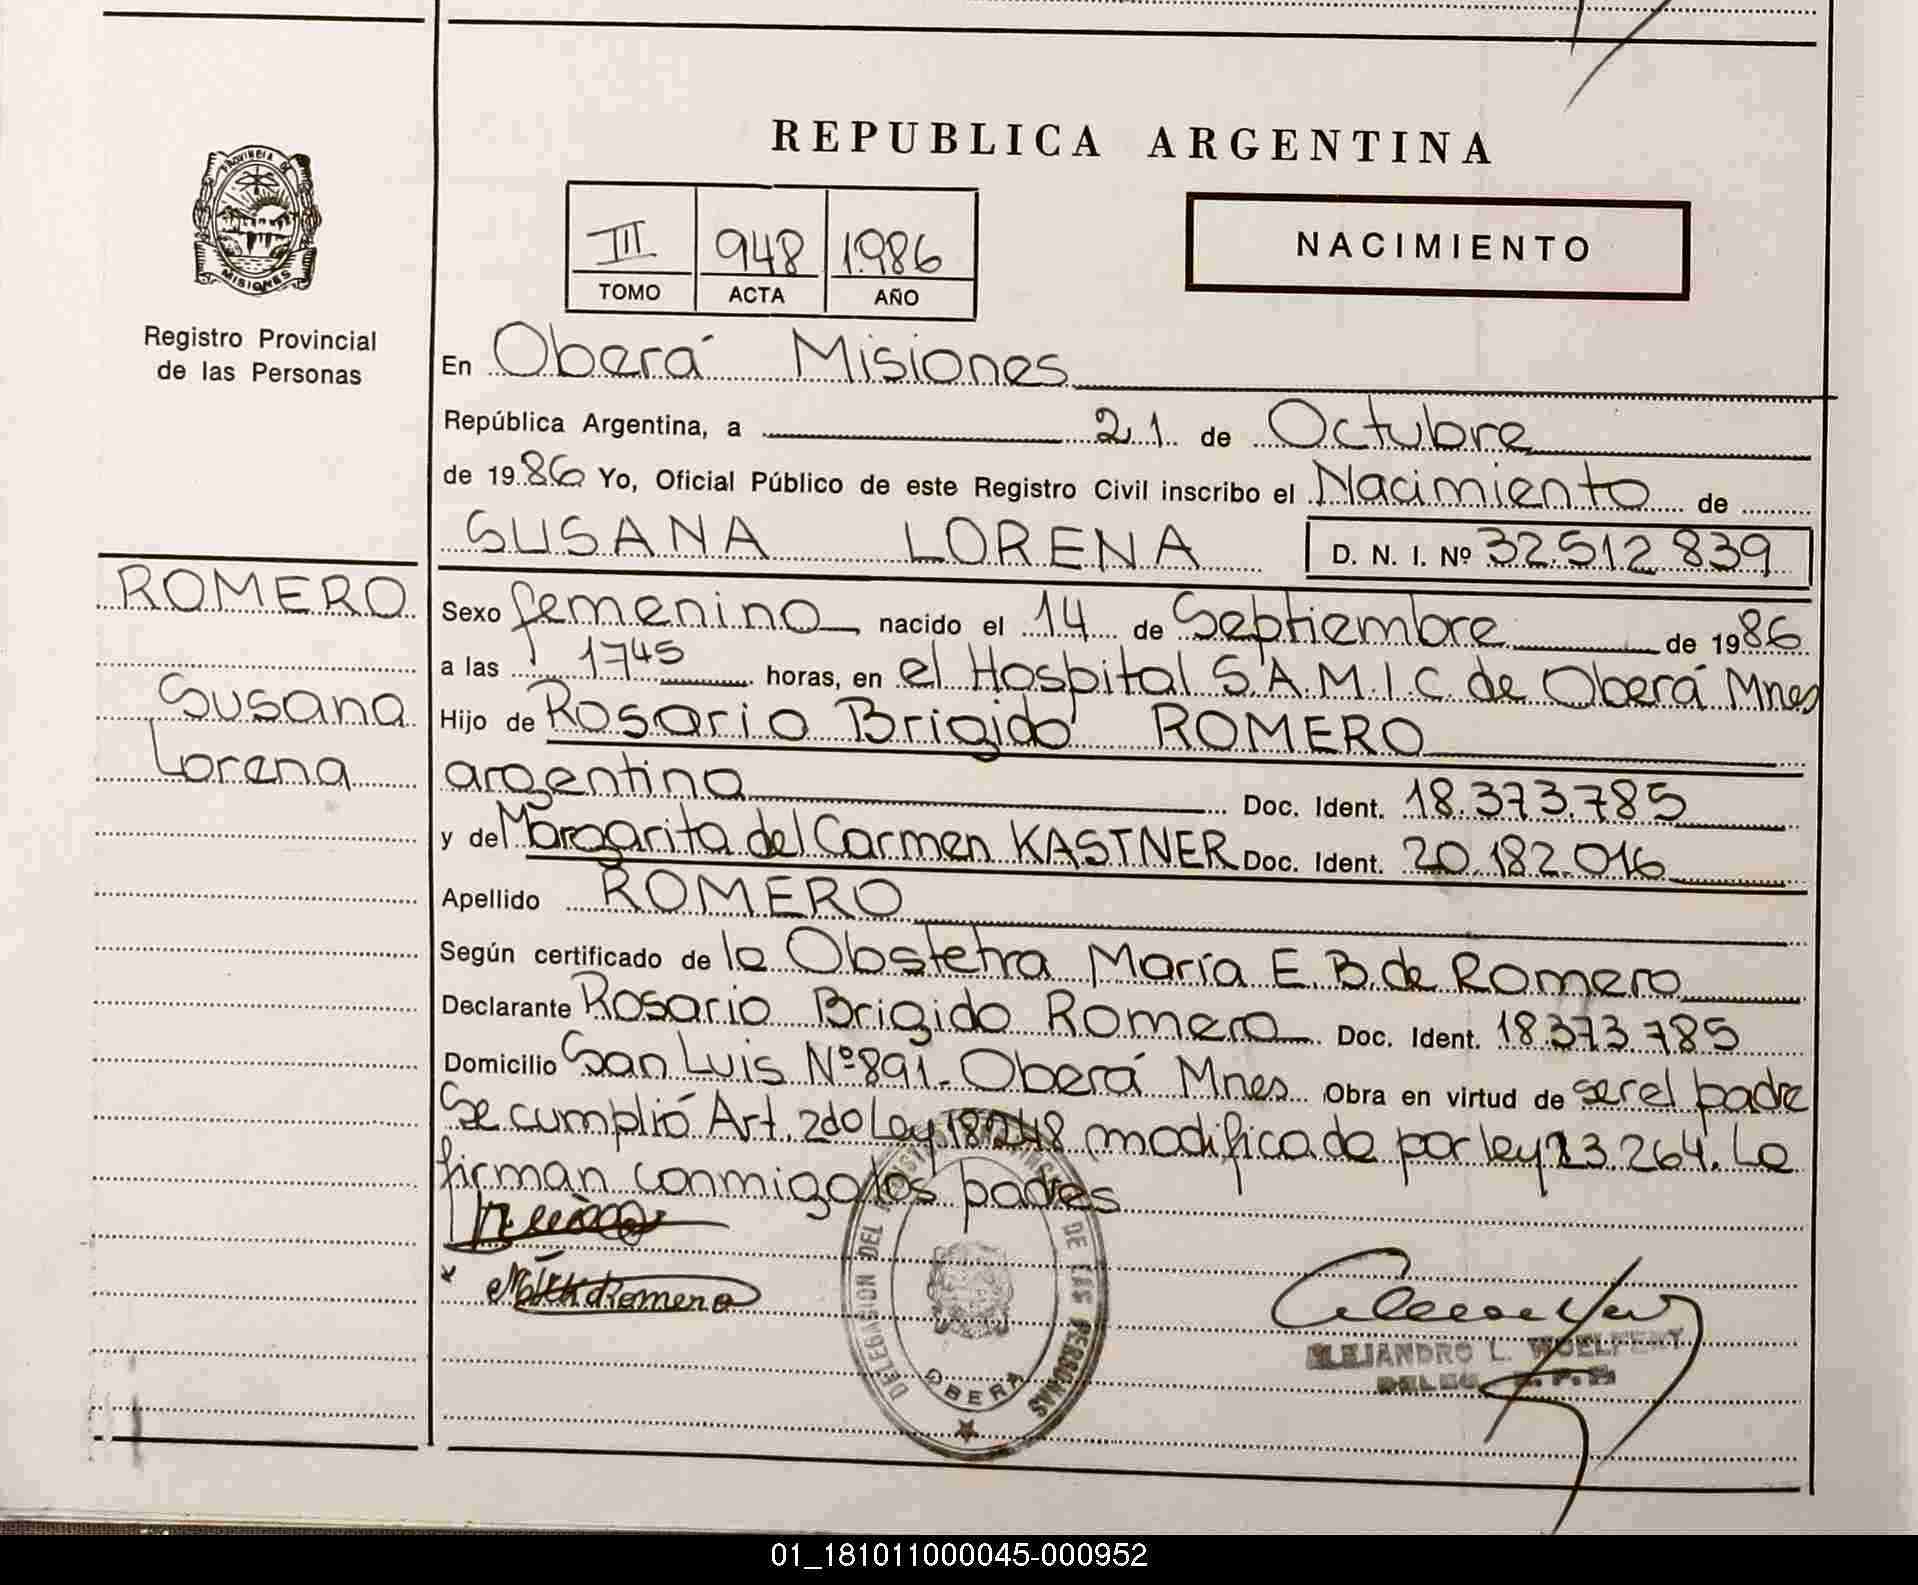 REPUBLICA ARGENTINA
PROVINCIA DE
MISIONES
Registro Provincial
de las Personas
III 948 1.986
TOMO ACTA AÑO
NACIMIENTO
En Oberá Misiones
República Argentina, a 21 de Octubre
de 1986 Yo, Oficial Público de este Registro Civil inscribo el Nacimiento de
SUSANA LORENA D. N. I. Nº 32.512.839
ROMERO
Susana
Lorena
Sexo femenino nacido el 14 de Septiembre de 1986
a las 1745 horas, en el Hospital S.A.M.I.C. de Oberá Mnes
Hijo de Rosario Brigido ROMERO
argentino Doc. Ident. 18.373.785
y de Margarita del Carmen KASTNER Doc. Ident. 20.182.016
Apellido ROMERO
Según certificado de la Obstetra María E. B. de Romero
Declarante Rosario Brigido Romero Doc. Ident. 18.373.785
Domicilio San Luis Nº 891. Oberá Mnes Obra en virtud de ser el padre
Se cumplió Art. 2do Ley 18248 modificada por ley 23.264. La
firman conmigo los padres
Romero
DELEGACION DEL DE LAS PERSONAS
OBERA
ALEJANDRO L.
01_181011000045-000952